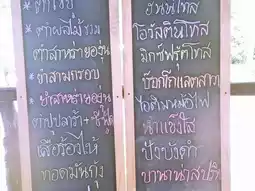 * ตำซั่ว
* ตำผลไม้รวม
ตำสาหร่ายองุ่น
* ยำสามกรอบ
* ยำสาหร่ายองุ่น
ตำปูปลาร้า+
เสือร้องไห้
ทอดมันกุ้ง
ฮันนี่โทส
โอวัลตินโทส
มิกซ์ฟรุ๊ตโทส
ช๊อกโกแลตลาวา
ไอติมหม้อไฟ
น้ำแข็งไส
ปังปิ้ง
บานาน่าสปริท